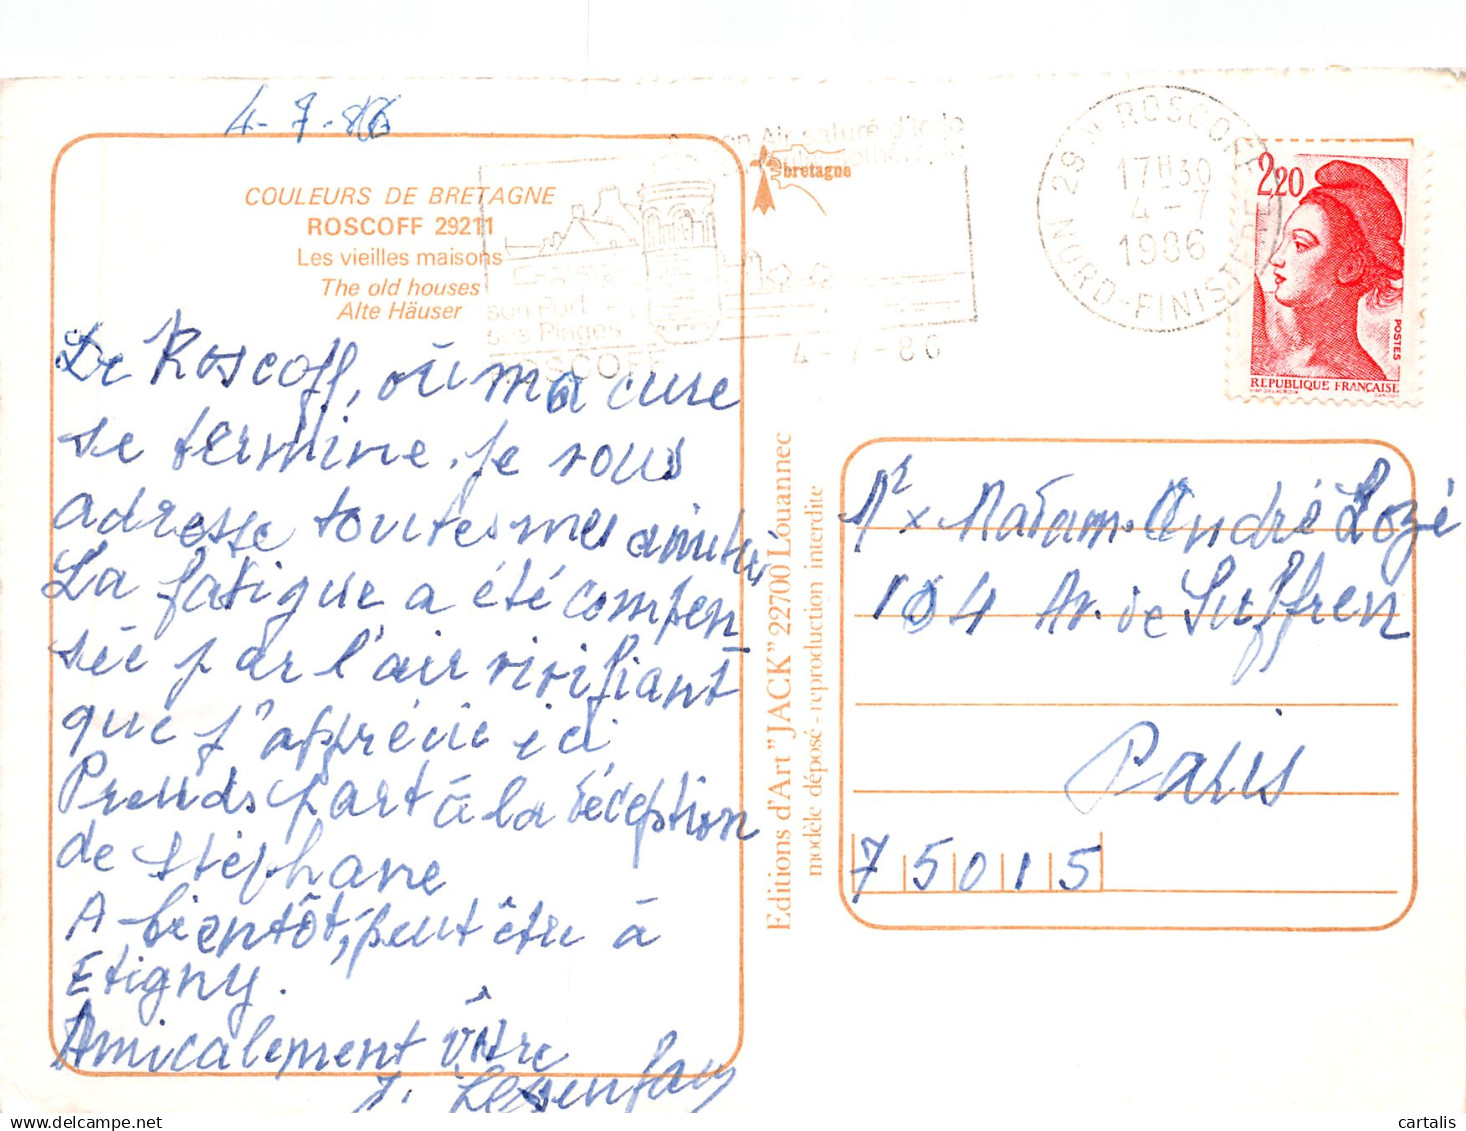 4-7-86
COULEURS DE BRETAGNE
ROSCOFF 29211
Les vieilles maisons
The old houses
Alte Häuser
De Roscoff, où ma cure
se termine, je vous
adresse toutes mes amitiés
La fatigue a été compen
sée par l'air vivifiant
que j'apprécie ici
Prends part à la réception
de Stéphane
A bientôt, peut être à
Etigny.
Amicalement vôtre
J.
son Air saturé d'Iode
bretagne
son Port
ses Plages
ROSCOFF
4-7-86
29 N ROSCOFF
17H30
4-7
1986
NORD-FINISTERE
2,20
POSTES
REPUBLIQUE FRANCAISE
Editions d'Art "JACK" 22700 Louannec
modèle déposé - reproduction interdite
Mr x Madam. André Lozé
104 Av. de Suffren
Paris
75015
cartalis